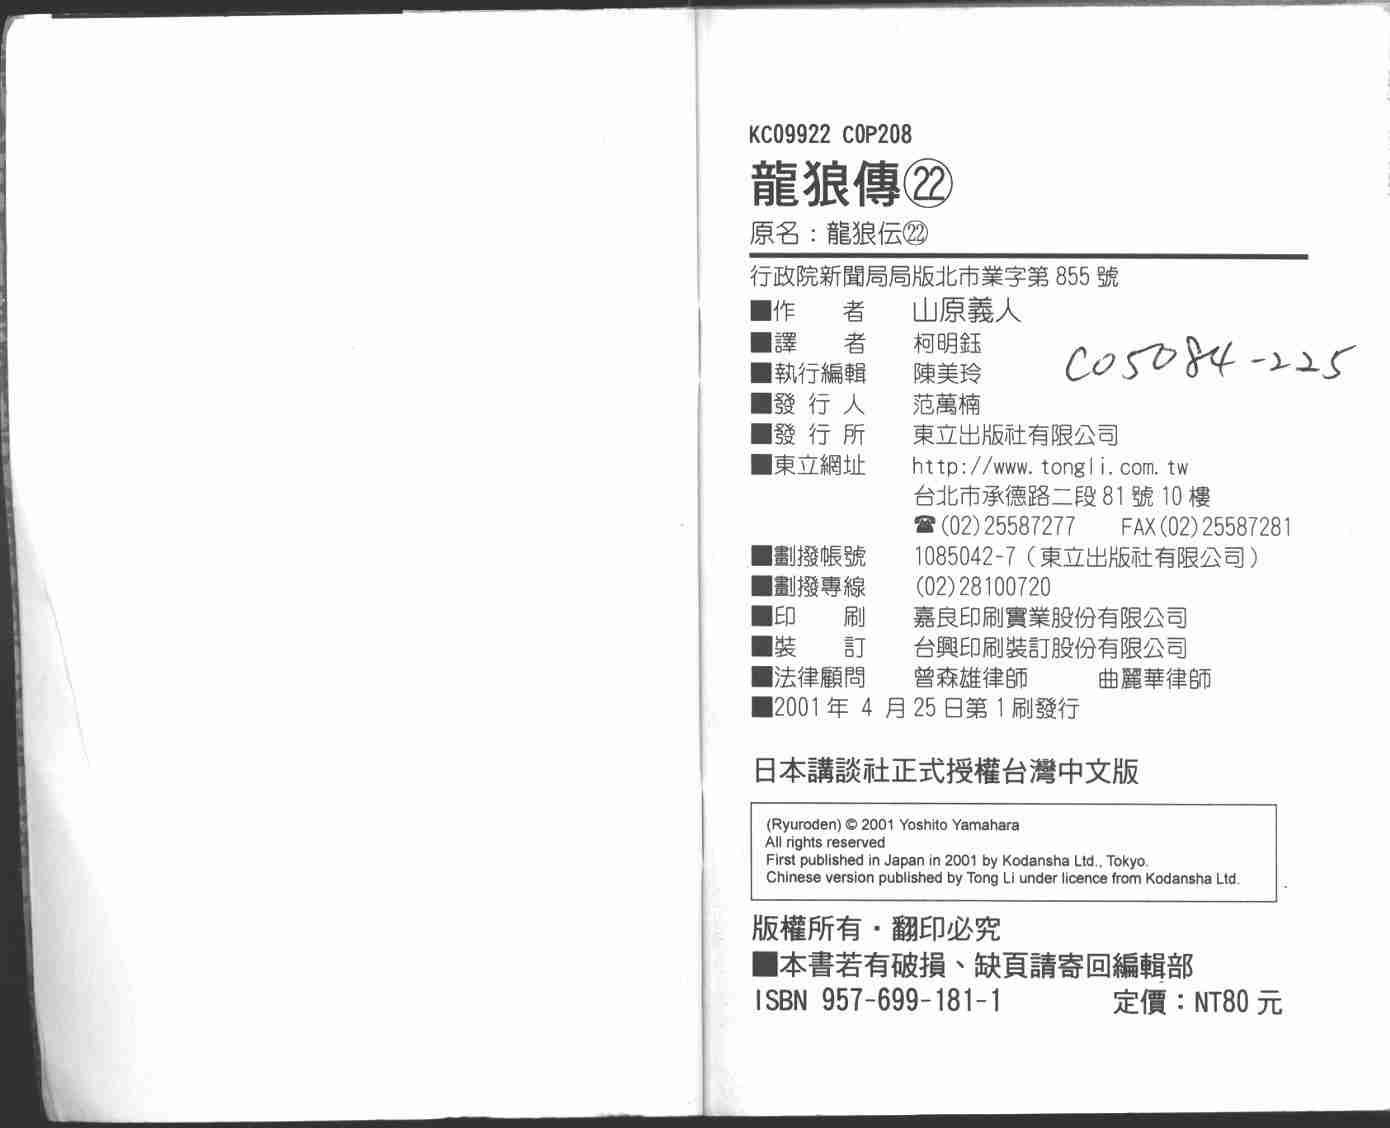 KC09922 COP208
龍狼傳㉒
原名：龍狼伝㉒
行政院新聞局局版北市業字第 855 號
■作　　者　山原義人
■譯　　者　柯明鈺
CO5084-225
■執行編輯　陳美玲
■發 行 人　范萬楠
■發 行 所　東立出版社有限公司
■東立網址　http://www.tongli.com.tw
台北市承德路二段 81 號 10 樓
☎(02)25587277　FAX(02)25587281
■劃撥帳號　1085042-7（東立出版社有限公司）
■劃撥專線　(02)28100720
■印　　刷　嘉良印刷實業股份有限公司
■裝　　訂　台興印刷裝訂股份有限公司
■法律顧問　曾森雄律師　　曲麗華律師
■2001 年 4 月 25 日第 1 刷發行
日本講談社正式授權台灣中文版
(Ryuroden) © 2001 Yoshito Yamahara
All rights reserved
First published in Japan in 2001 by Kodansha Ltd., Tokyo.
Chinese version published by Tong Li under licence from Kodansha Ltd.
版權所有・翻印必究
■本書若有破損、缺頁請寄回編輯部
ISBN 957-699-181-1　　定價：NT80 元